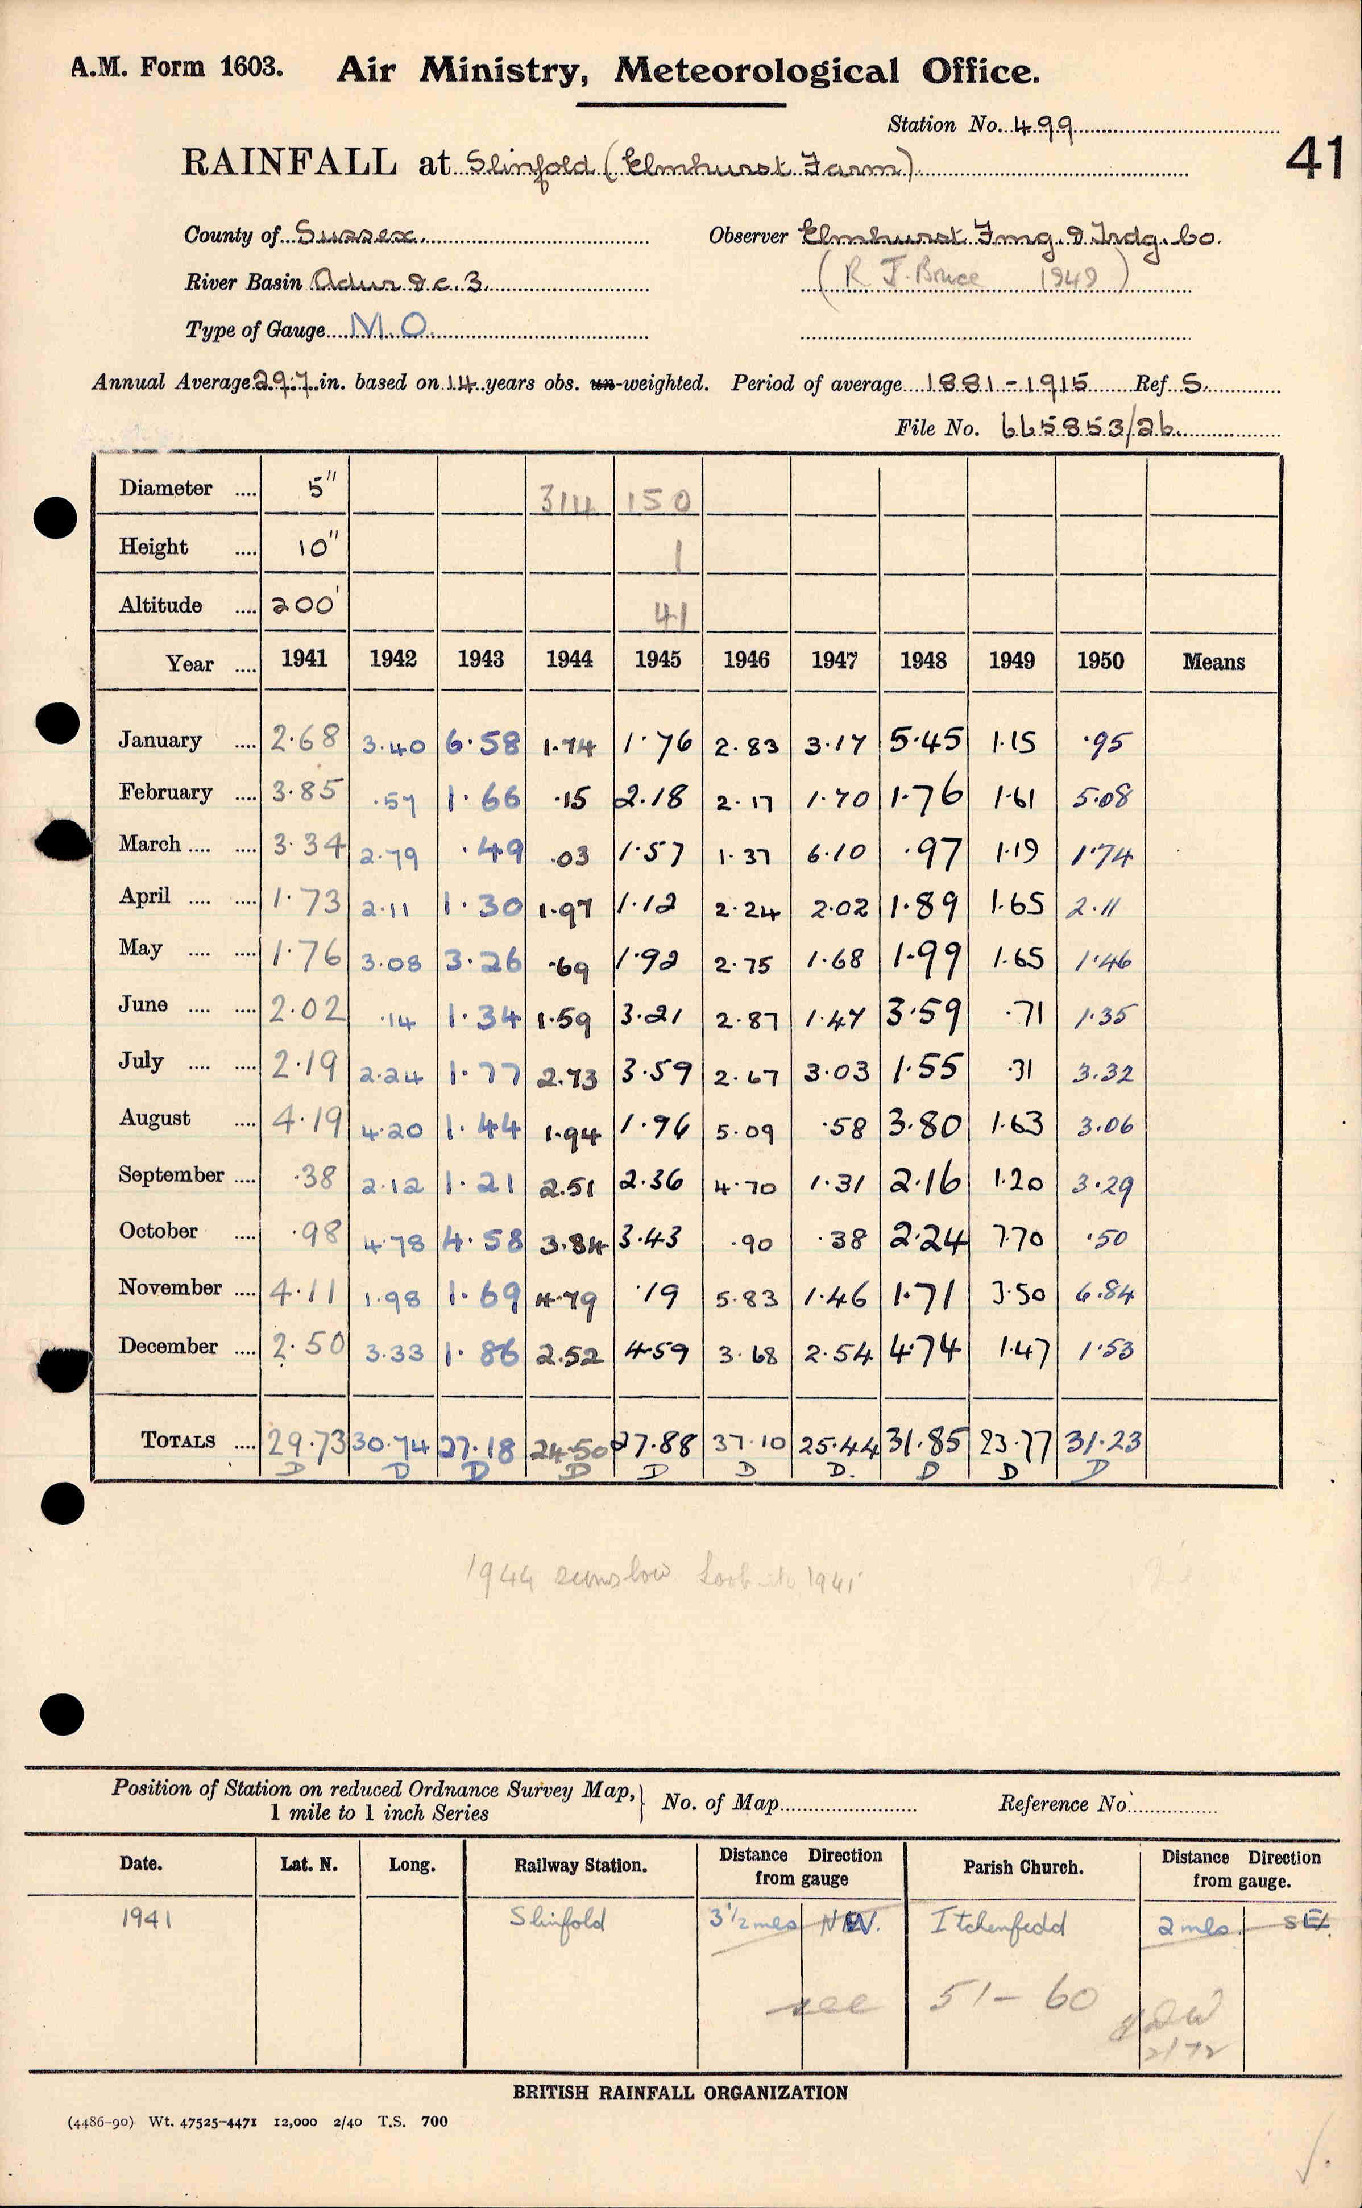 A.M. Form 1603. Air Ministry, Meteorological Office.
Station No. 499
41
RAINFALL at Slinfold (Elmhurst Farm)
County of Sussex. Observer Elmhurst Fmg. & Trdg. Co.
River Basin Adur &c. 3. (R J. Bruce 1949)
Type of Gauge M.O.
Annual Average 29.7 in. based on 14 years obs. un-weighted. Period of average 1881-1915 Ref S.
File No. 665853/26
Diameter .... 5" 314 150
Height .... 10" 1
Altitude .... 200' 41
Year .... 1941 1942 1943 1944 1945 1946 1947 1948 1949 1950 Means
January .... 2.68 3.40 6.58 1.74 1.76 2.83 3.17 5.45 1.15 .95
February .... 3.85 .57 1.66 .15 2.18 2.17 1.70 1.76 1.61 5.08
March .... .... 3.34 2.79 .49 .03 1.57 1.37 6.10 .97 1.19 1.74
April .... .... 1.73 2.11 1.30 1.97 1.12 2.24 2.02 1.89 1.65 2.11
May .... .... 1.76 3.08 3.26 .69 1.92 2.75 1.68 1.99 1.65 1.46
June .... .... 2.02 .14 1.34 1.59 3.21 2.87 1.47 3.59 .71 1.35
July .... .... 2.19 2.24 1.77 2.73 3.59 2.67 3.03 1.55 .31 3.32
August .... 4.19 4.20 1.44 1.94 1.96 5.09 .58 3.80 1.63 3.06
September .... .38 2.12 1.21 2.51 2.36 4.70 1.31 2.16 1.20 3.29
October .... .98 4.78 4.58 3.84 3.43 .90 .38 2.24 7.70 .50
November .... 4.11 1.98 1.69 4.79 .19 5.83 1.46 1.71 3.50 6.84
December .... 2.50 3.33 1.86 2.52 4.59 3.68 2.54 4.74 1.47 1.53
TOTALS .... 29.73 30.74 27.18 24.50 27.88 37.10 25.44 31.85 23.77 31.23
D D D D D D D. D D D
1944 seems low Look 1941
Position of Station on reduced Ordnance Survey Map, 1 mile to 1 inch Series } No. of Map Reference No.
Date. Lat. N. Long. Railway Station. Distance Direction from gauge Parish Church. Distance Direction from gauge.
1941 Slinfold 3 1/2 mls NW. Itchenfedd 2 mls. SE
see 51-60
2/72
BRITISH RAINFALL ORGANIZATION
(4486-90) Wt. 47525-4471 12,000 2/40 T.S. 700